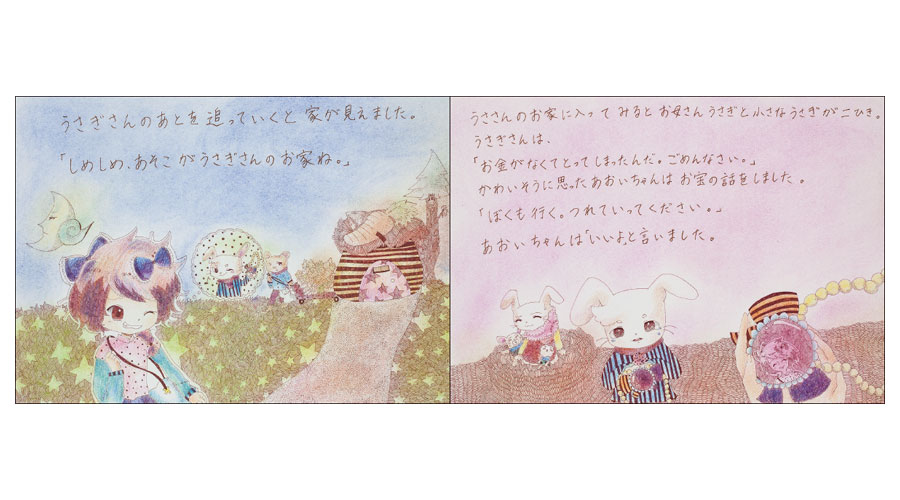 うさぎさんのあとを追っていくと家が見えました。
「しめしめ、あそこがうさぎさんのお家ね。」
うささんのお家に入ってみるとお母さんうさぎと小さなうさぎが二ひき。
うさぎさんは、
「お金がなくてとってしまったんだ。ごめんなさい。」
かわいそうに思ったあおいちゃんはお宝の話をしました。
「ぼくも行く。つれていってください。」
あおいちゃんは「いいよ」と言いました。